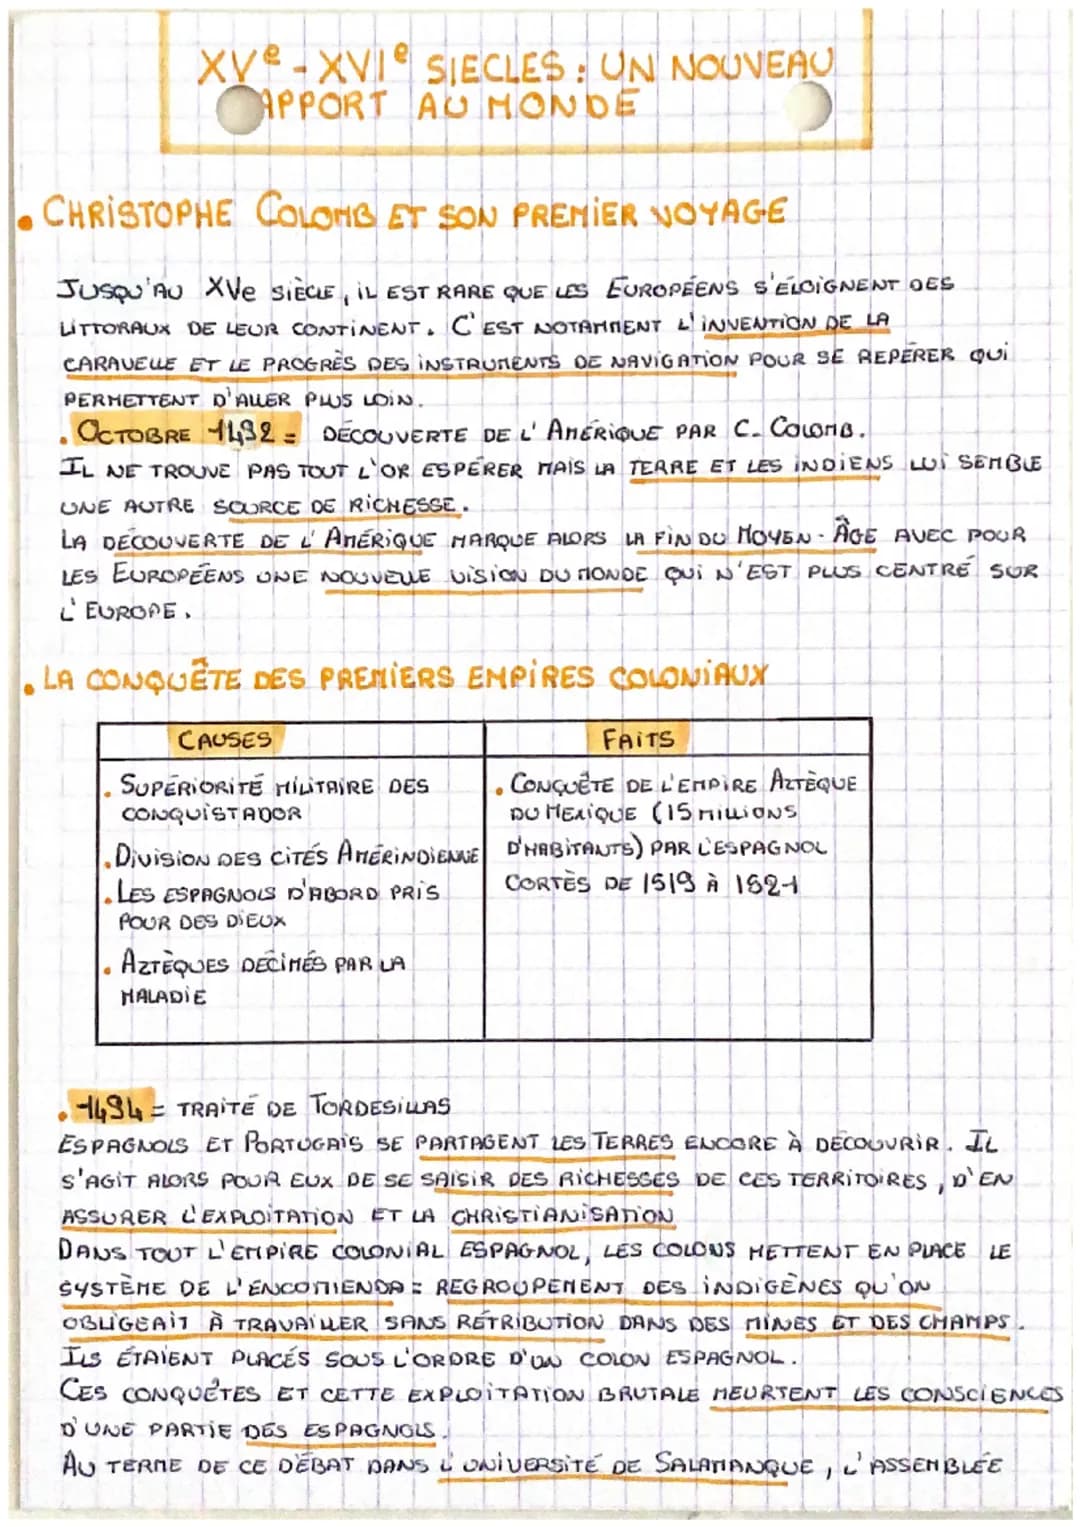 XVe - XVIe SIECLES : UN NOUVEAU
APPORT AU MONDE
• CHRISTOPHE COLOMB ET SON PREMIER VOYAGE
JUSQU'AU XVe SIÈCLE, IL EST RARE QUE LES EUROPÉENS S'ÉLOIGNENT DES
LITTORAUX DE LEUR CONTINENT. C'EST NOTAMMENT L'INVENTION DE LA
CARAVELLE ET LE PROGRÈS DES INSTRUMENTS DE NAVIGATION POUR SE REPÉRER QUI
PERMETTENT D'ALLER PLUS LOIN.
• OCTOBRE 1492 = DÉCOUVERTE DE L'AMÉRIQUE PAR C. COLOMB.
IL NE TROUVE PAS TOUT L'OR ESPÉRER MAIS LA TERRE ET LES INDIENS LUI SEMBLE
UNE AUTRE SOURCE DE RICHESSE.
LA DÉCOUVERTE DE L'AMÉRIQUE MARQUE ALORS LA FIN DU MOYEN-ÂGE AVEC POUR
LES EUROPÉENS UNE NOUVELLE VISION DU MONDE QUI N'EST PLUS CENTRÉ SUR
L'EUROPE.
• LA CONQUÊTE DES PREMIERS EMPIRES COLONIAUX
CAUSES
• SUPÉRIORITÉ MILITAIRE DES
CONQUISTADOR
• DIVISION DES CITÉS AMÉRINDIENNE
• LES ESPAGNOLS D'ABORD PRIS
POUR DES DIEUX
• AZTÈQUES DÉCIMÉS PAR LA
MALADIE
FAITS
• CONQUÊTE DE L'EMPIRE AZTÈQUE
DU MEXIQUE (15 MILLIONS
D'HABITANTS) PAR L'ESPAGNOL
CORTÈS DE 1519 À 1521
• 1494 = TRAITÉ DE TORDESILLAS
ESPAGNOLS ET PORTUGAIS SE PARTAGENT LES TERRES ENCORE À DÉCOUVRIR. IL
S'AGIT ALORS POUR EUX DE SE SAISIR DES RICHESSES DE CES TERRITOIRES, D'EN
ASSURER L'EXPLOITATION ET LA CHRISTIANISATION
DANS TOUT L'EMPIRE COLONIAL ESPAGNOL, LES COLONS METTENT EN PLACE LE
SYSTÈME DE L'ENCOMIENDA = REGROUPEMENT DES INDIGÈNES QU'ON
OBLIGEAIT À TRAVAILLER SANS RÉTRIBUTION DANS DES MINES ET DES CHAMPS.
ILS ÉTAIENT PLACÉS SOUS L'ORDRE D'UN COLON ESPAGNOL.
CES CONQUÊTES ET CETTE EXPLOITATION BRUTALE MEURTENT LES CONSCIENCES
D'UNE PARTIE DES ESPAGNOLS.
AU TERME DE CE DÉBAT DANS L'UNIVERSITÉ DE SALAMANQUE, L'ASSEMBLÉE